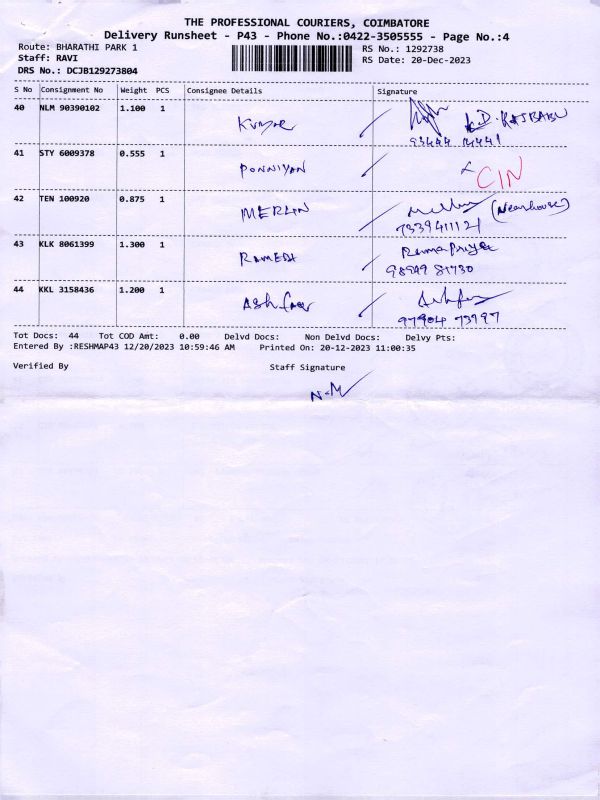 THE PROFESSIONAL COURIERS, COIMBATORE
Delivery Runsheet - P43 - Phone No.:0422-3505555 - Page No.:4
Route: BHARATHI PARK 1 RS No.: 1292738
Staff: RAVI RS Date: 20-Dec-2023
DRS No.: DCJB129273804
S No Consignment No Weight PCS Consignee Details Signature
40 NLM 90390102 1.100 1 Kumar K.D. RAJBABU
93444 14441
41 STY 6009378 0.555 1 PONNIYAN CIN
42 TEN 100920 0.875 1 MERLIN (Nearhouse)
7339411121
43 KLK 8061399 1.300 1 RAMESH Rama Priya
98949 81730
44 KKL 3158436 1.200 1
97904 73997
Tot Docs: 44 Tot COD Amt: 0.00 Delvd Docs: Non Delvd Docs: Delvy Pts:
Entered By :RESHMAP43 12/20/2023 10:59:46 AM Printed On: 20-12-2023 11:00:35
Verified By Staff Signature
N-M